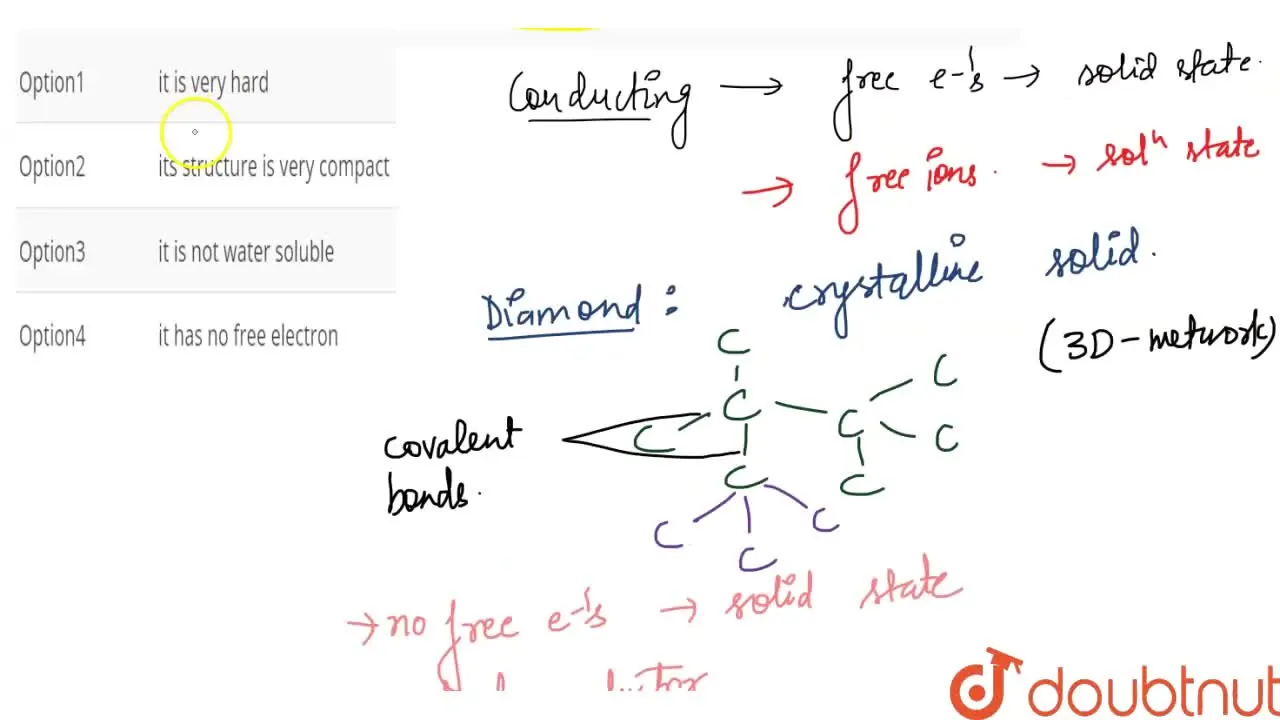 Option1 it is very hard
Option2 its structure is very compact
Option3 it is not water soluble
Option4 it has no free electron
Conducting → free e-'s → solid state.
→ free ions. → solⁿ state
Diamond: crystalline solid.
(3D-network)
C
C C C
C C C
covalent bonds.
C C
C C C
→ no free e-'s → solid state
doubtnut